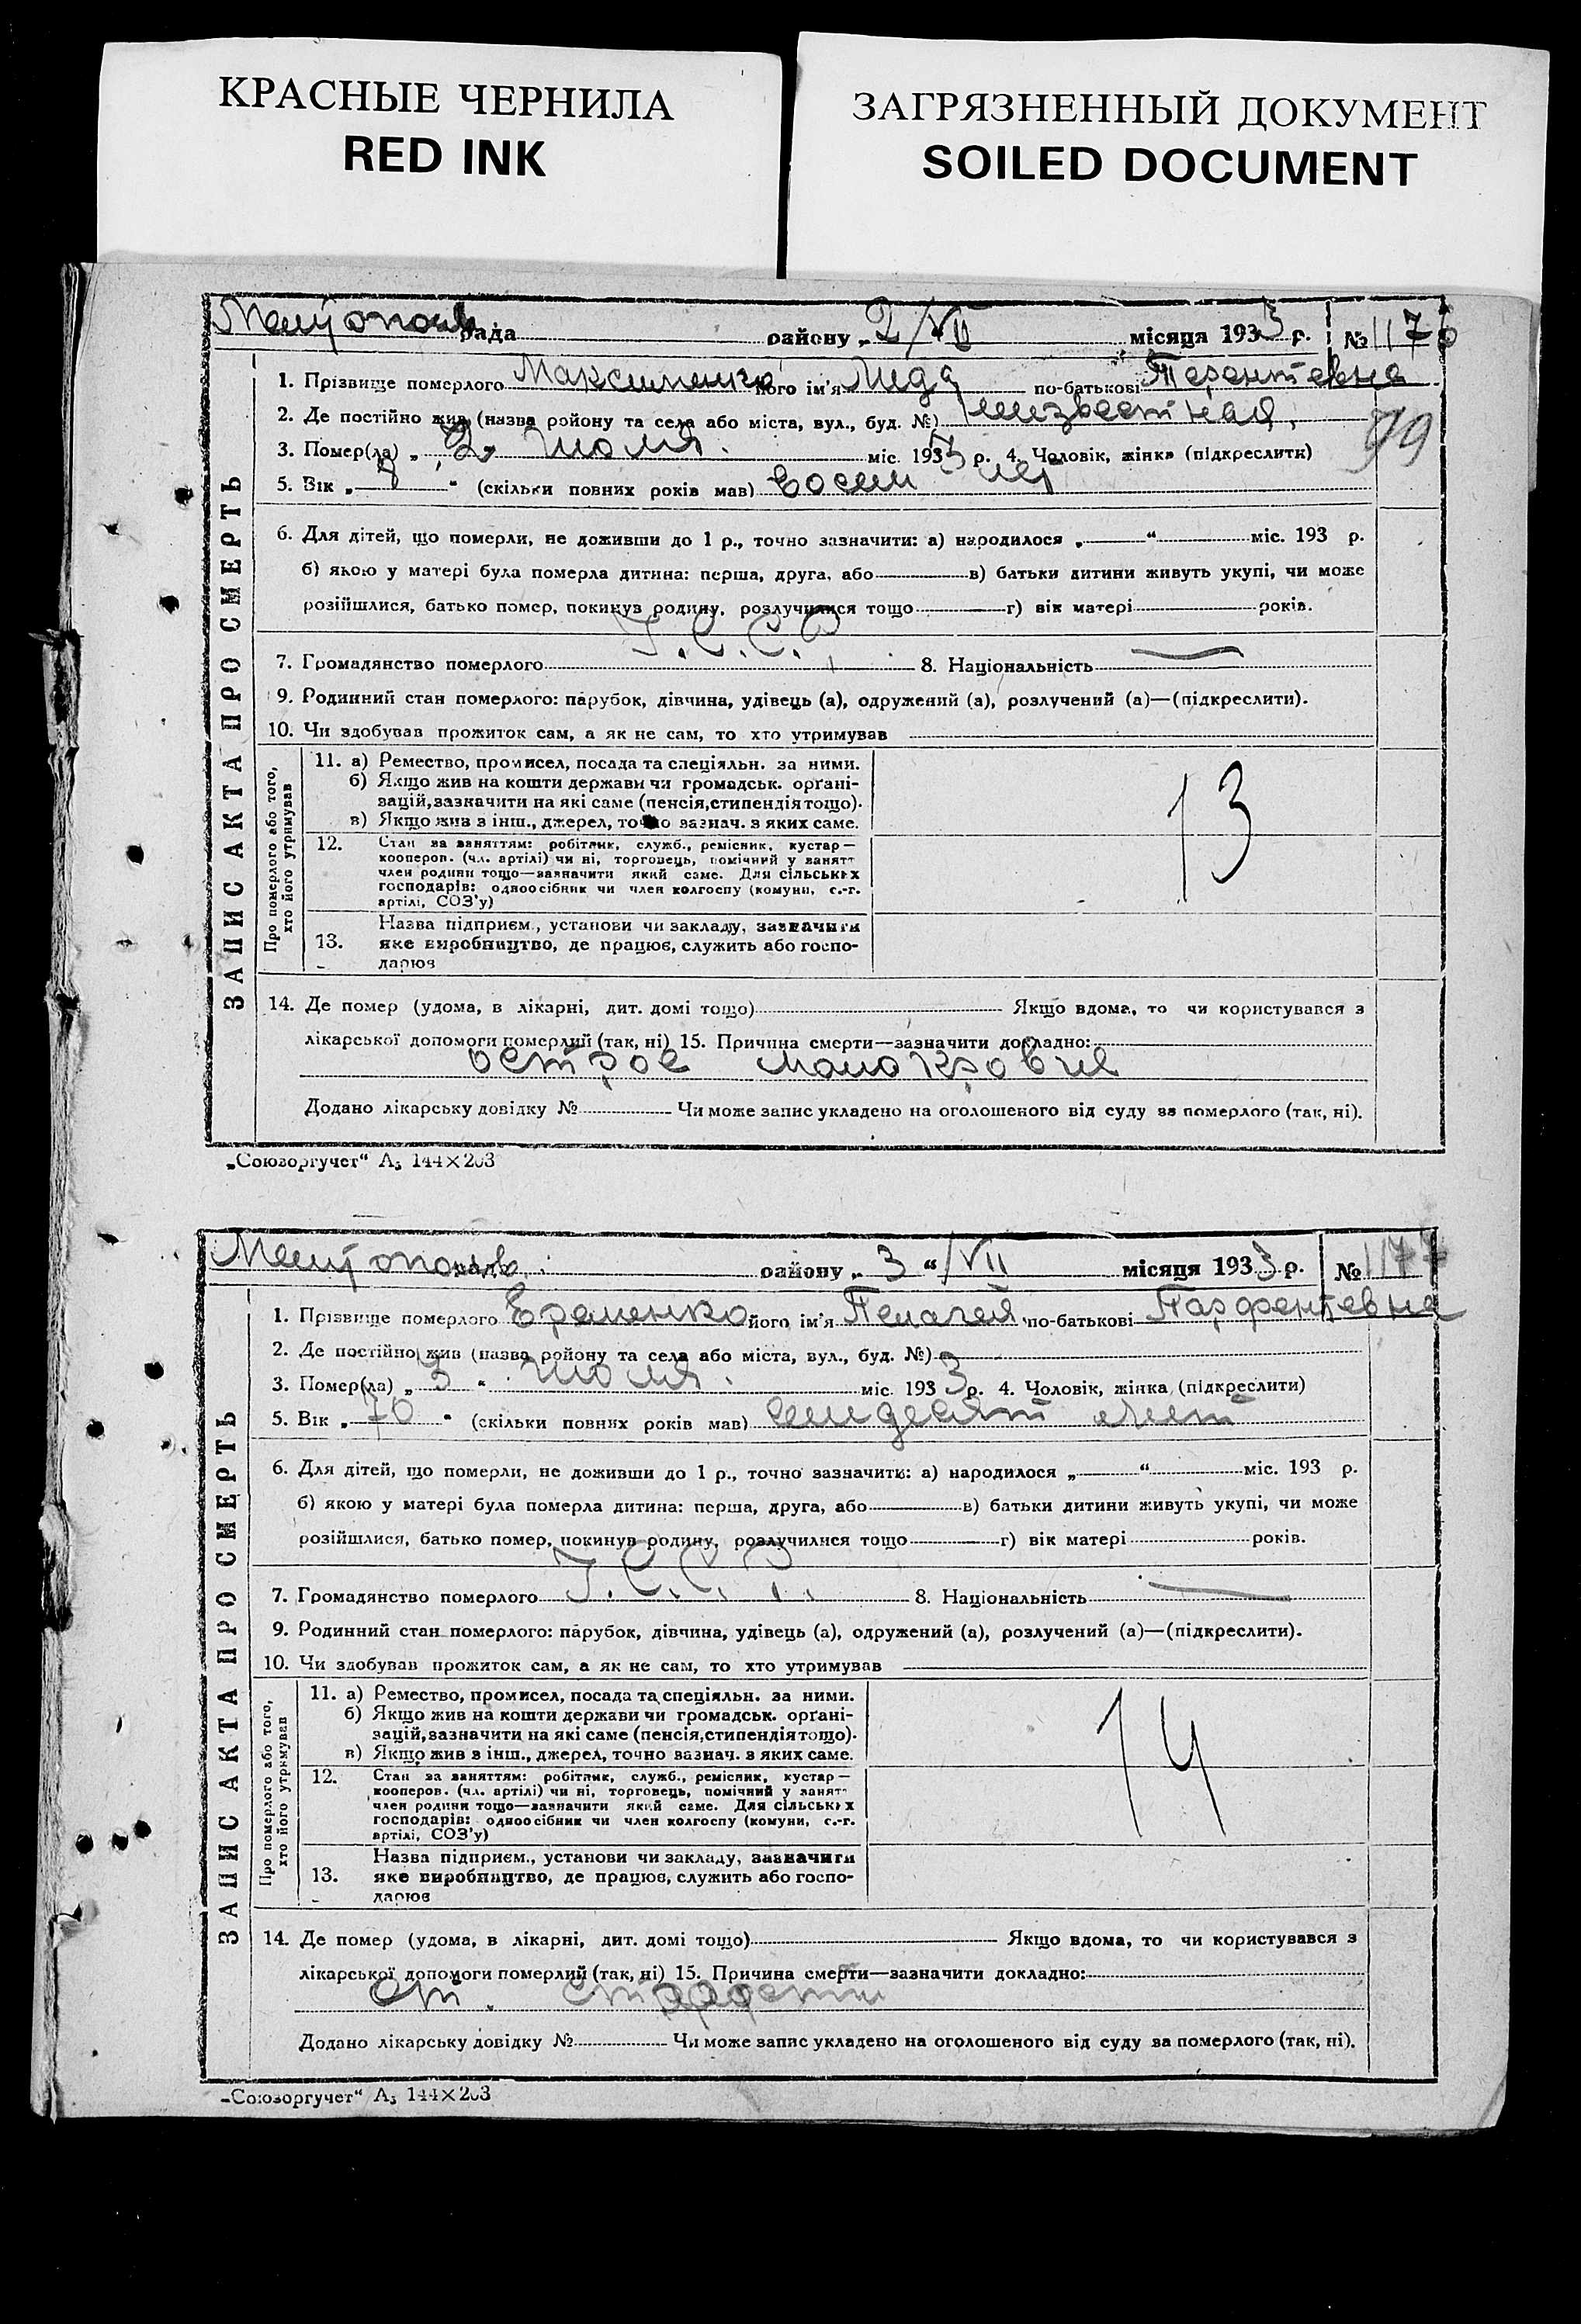 КРАСНЫЕ ЧЕРНИЛА
RED INK
ЗАГРЯЗНЕННЫЙ ДОКУМЕНТ
SOILED DOCUMENT
ЗАПИС АКТА ПРО СМЕРТЬ
рада району „ 2/VII місяця 1933 р. № 1176
1. Прізвище померлого Максименко його ім'я Лида по-батькові Терентевна
99
2. Де постійно жив (назва ройону та села або міста, вул., буд. №)
3. Помер(ла) „ 2 " июля міс. 1933 р. 4. Чоловік, жінка (підкреслити)
5. Вік „ 8 " (скільки повних років мав) восем лет
6. Для дітей, що померли, не доживши до 1 р., точно зазначити: а) народилося „ “ міс. 193 р.
б) якою у матері була померла дитина: перша, друга, або в) батьки дитини живуть укупі, чи може
розійшлися, батько помер, покинув родину, розлучилися тощо г) вік матері років.
7. Громадянство померлого У.С.С.Р. 8. Національність —
9. Родинний стан померлого: парубок, дівчина, удівець (а), одружений (а), розлучений (а)—(підкреслити).
10. Чи здобував прожиток сам, а як не сам, то хто утримував
Про померлого або того,
хто його утримував
11. а) Ремество, промисел, посада та спеціяльн. за ними.
б) Якщо жив на кошти держави чи громадськ. орґані-
зацій, зазначити на які саме (пенсія, стипендія тощо).
в) Якщо жив з інш., джерел, точно зазнач. з яких саме.
13
12. Стан за заняттям: робітник, служб., ремісник, кустар—
кооперов. (чл. артілі) чи ні, торговець, помічний у занятт
член родини тощо—зазначити який саме. Для сільських
господарів: одноосібник чи член колгоспу (комуни, с.-г.
артілі, СОЗ'у)
13. Назва підприєм., установи чи закладу, зазначити
яке виробництво, де працює, служить або госпо-
дарює
14. Де помер (удома, в лікарні, дит. домі тощо) Якщо вдома, то чи користувався з
лікарської допомоги померлий (так, ні) 15. Причина смерти—зазначити докладно:
острое малокровие
Додано лікарську довідку № Чи може запис укладено на оголошеного від суду за померлого (так, ні).
„Союзоргучет“ А₅ 144×203
ЗАПИС АКТА ПРО СМЕРТЬ
району „ 3 “/VII місяця 1933 р. № 1177
1. Прізвище померлого Еременко його ім'я Пелагея по-батькові Парфентевна
2. Де постійно жив (назва ройону та села або міста, вул., буд. №)
3. Помер(ла) „ 3 " июля міс. 1933 р. 4. Чоловік, жінка (підкреслити)
5. Вік „ 70 " (скільки повних років мав) семдесят лет
6. Для дітей, що померли, не доживши до 1 р., точно зазначить: а) народилося „ “ міс. 193 р.
б) якою у матері була померла дитина: перша, друга, або в) батьки дитини живуть укупі, чи може
розійшлися, батько помер, покинув родину, розлучилися тощо г) вік матері років.
7. Громадянство померлого У.С.С.Р. 8. Національність —
9. Родинний стан померлого: парубок, дівчина, удівець (а), одружений (а), розлучений (а)—(підкреслити).
10. Чи здобував прожиток сам, а як не сам, то хто утримував
Про померлого або того,
хто його утримував
11. а) Ремество, промисел, посада та спеціяльн. за ними.
б) Якщо жив на кошти держави чи громадськ. орґані-
зацій, зазначити на які саме (пенсія, стипендія тощо).
в) Якщо жив з інш., джерел, точно зазнач. з яких саме.
14
12. Стан за заняттям: робітник, служб., ремісник, кустар—
кооперов. (чл. артілі) чи ні, торговець, помічний у занятт
член родини тощо—зазначити який саме. Для сільських
господарів: одноосібник чи член колгоспу (комуни, с.-г.
артілі, СОЗ'у)
13. Назва підприєм., установи чи закладу, зазначити
яке виробництво, де працює, служить або госпо-
дарює
14. Де помер (удома, в лікарні, дит. домі тощо) Якщо вдома, то чи користувався з
лікарської допомоги померлий (так, ні) 15. Причина смерти—зазначити докладно:
От
Додано лікарську довідку № Чи може запис укладено на оголошеного від суду за померлого (так, ні).
„Союзоргучет“ А₅ 144×203